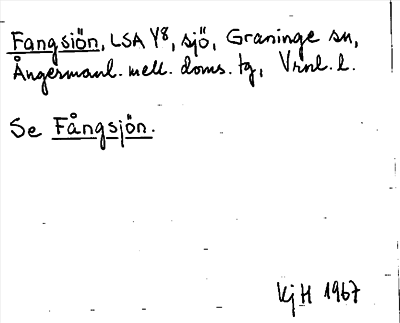 Fangsiön, LSA Y8, sjö, Graninge sn,
Ångermanl. mell. doms. tg, Vrnl. l.
Se Fångsjön.
KjH 1967